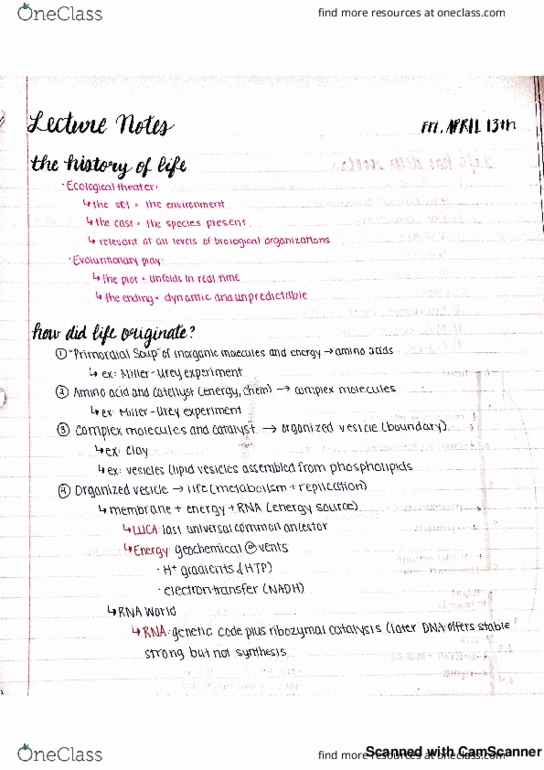 OneClass
find more resources at oneclass.com
Lecture Notes
Fri. APRIL 13th
the history of life
· Ecological theater:
↳ the set = the environment
↳ the cast = the species present
↳ relevant at all levels of biological organizations
· Evolutionary play:
↳ the plot = unfolds in real time
↳ the ending = dynamic and unpredictable
how did life originate?
① "Primordial Soup" of inorganic molecules and energy → amino acids
↳ ex: Miller-Urey experiment
② Amino acid and catellyst (energy, chem) → complex molecules
↳ ex: Miller-Urey experiment
③ complex molecules and catalyst → organized vesicle (boundary)
↳ ex: clay
↳ ex: vesicles (lipid vesicles assembled from phospholipids
④ Organized vesicle → life (metabolism + replication)
↳ membrane + energy + RNA (energy source)
↳ LUCA: last universal common ancestor
↳ Energy: geochemical @ vents
· H+ gradients (HTP)
· electron transfer (NADH)
↳ RNA World
↳ RNA: genetic code plus ribozymal catalysis (later DNA offers stable
strong but not synthesis
OneClass
find more resources at oneclass.com
Scanned with CamScanner